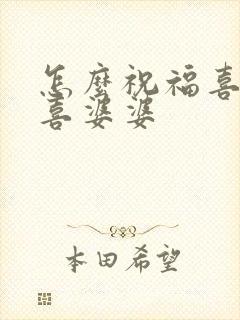 怎麽祝福喜
喜婆婆
本田希望